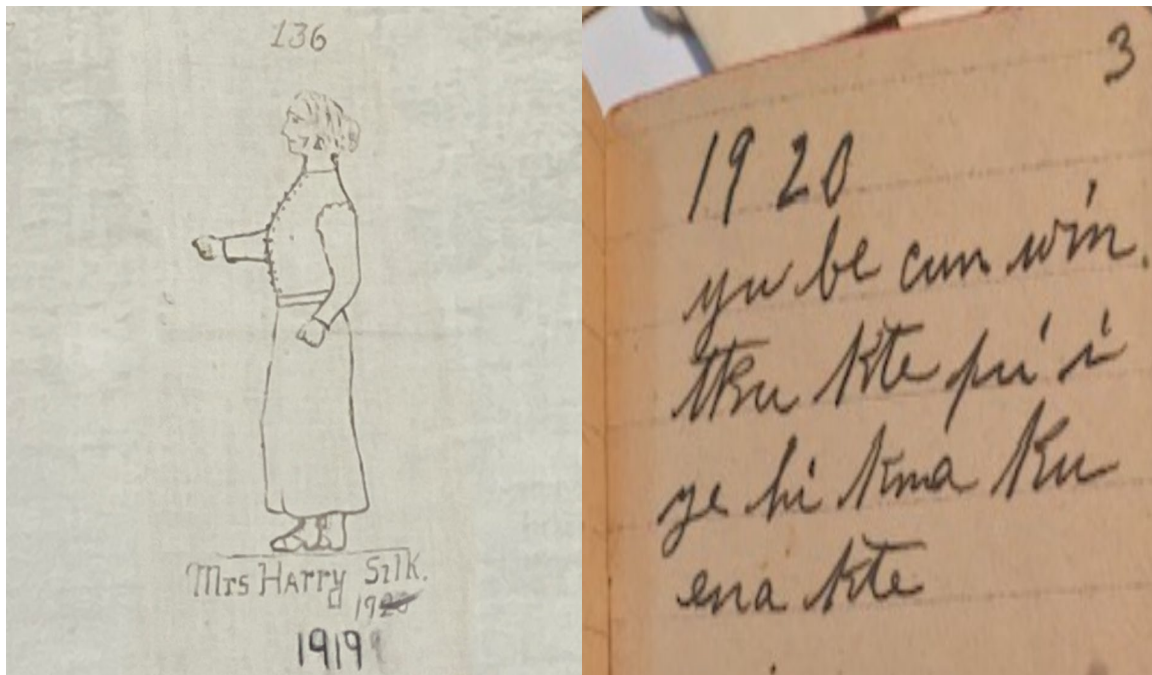 136
Mrs Harry Silk.
1920
1919
3
1920
yu be cun win.
tku kte pi i
ye hi kna ku
ena kte